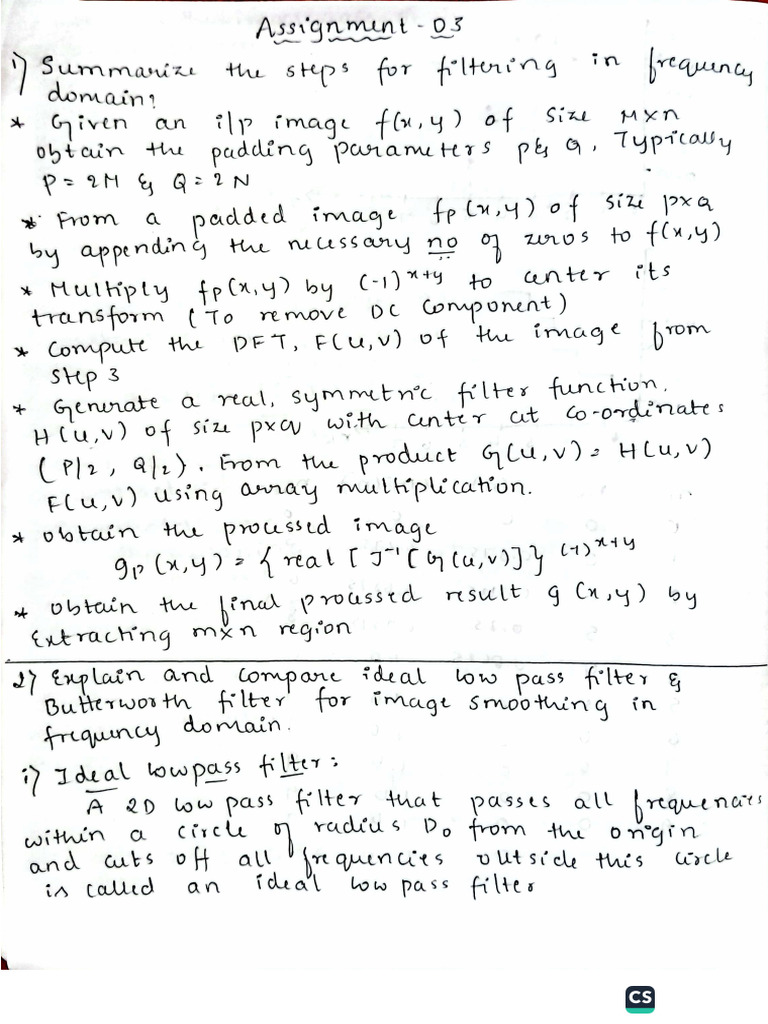 Assignment - 03
1) Summarize the steps for filtering in frequency
domain?
* Given an i/p image f(x,y) of size MXn
obtain the padding parameters p & Q, Typically
P = 2M & Q = 2N
* From a padded image fp(x,y) of size pxQ
by appending the necessary no of zeros to f(x,y)
* Multiply fp(x,y) by (-1)^x+y to center its
transform (To remove DC component)
* Compute the DFT, F(u,v) of the image from
step 3
* Generate a real, symmetric filter function.
H(u,v) of size pxQ with center at co-ordinates
(P/2, Q/2). From the product G(u,v) = H(u,v)
F(u,v) using array multiplication.
* obtain the processed image
gp(x,y) = { real [ J^-1 [ G(u,v)] } (-1)^x+y
* obtain the final processed result g(x,y) by
Extracting mxn region
2) Explain and compare ideal low pass filter &
Butterworth filter for image smoothing in
frequency domain.
i) Ideal lowpass filter:
A 2D low pass filter that passes all frequencies
within a circle of radius D0 from the origin
and cuts off all frequencies outside this circle
is called an ideal low pass filter
CS